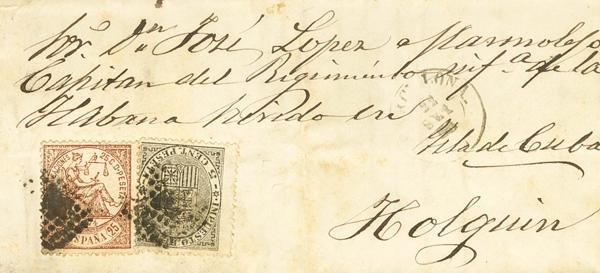 Sor. Dn. José Lopez Marmolejo
Capitan del Regimiento inf.a de la
Habana
Isla de Cuba
Holguin
LONA
25 CS DE PESETA
ESPAÑA 25
5 CENT. PESETA
IMPUESTO